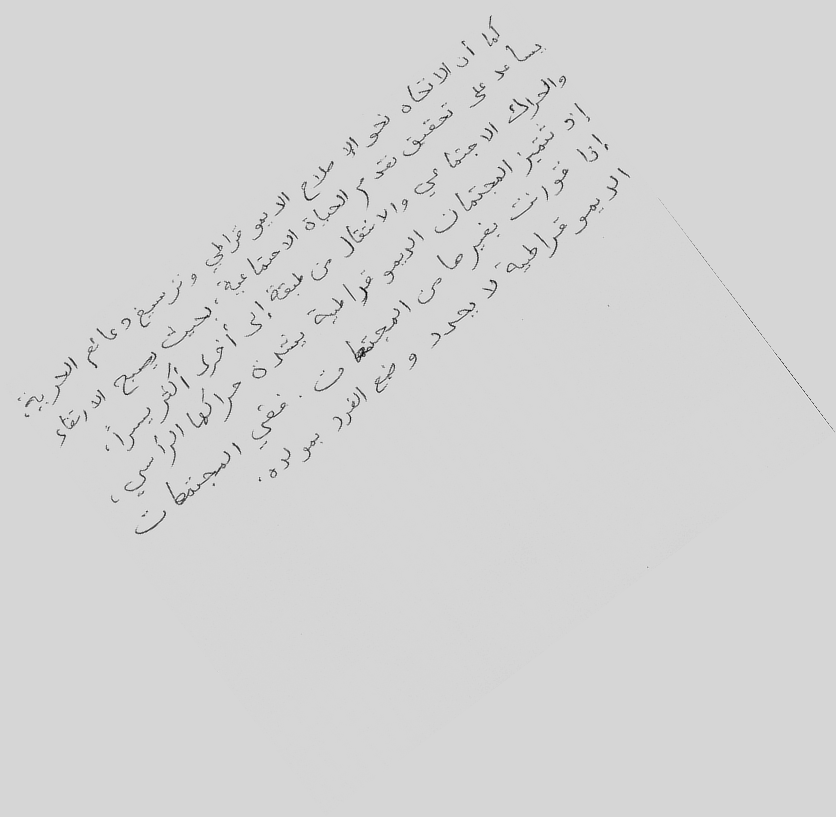 كما أن الاتجاه نحو الإصلاح الديموقراطي وترسيخ دعائم الحرية،
يساعد على تحقيق تقدم الحياة الاجتماعية، بحيث يصبح الارتقاء
والحراك الاجتماعي والانتقال من طبقة إلى أخرى أكثر يسراً،
إذ تتميز المجتمعات الديموقراطية بشدة حراكها الرأسي،
إذا قورنت بغيرها من المجتمعات. ففي المجتمعات
الديموقراطية لا يحدد وضع الفرد بمولده.